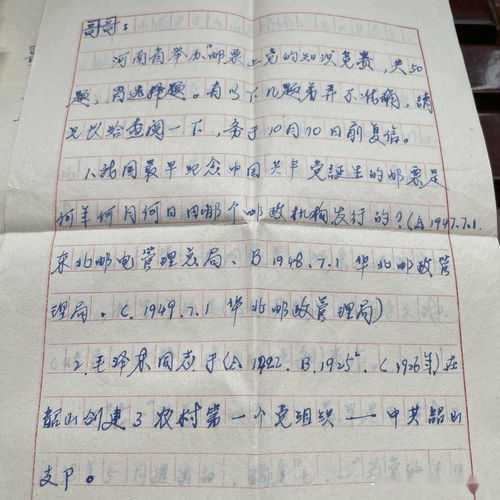 哥哥：
河南省举办"邮票上党的知识"竞赛，共50
题，为选择题。有以下几题看弄不准确，请
兄长给查阅一下，务于10月10日前复信。
1.我国最早纪念中国共产党誔生的邮票是
何年何月何日由哪个邮政机构发行的？(A 1947.7.1.
东北邮电管理总局、B 1948.7.1 华北邮政管
理局．C.1949.7.1 华北邮政管理局)
2.毛泽东同志于(A 1922. B.1925 C 1926年)在
韶山创建了农村第一个党组织——中共韶山
支部。